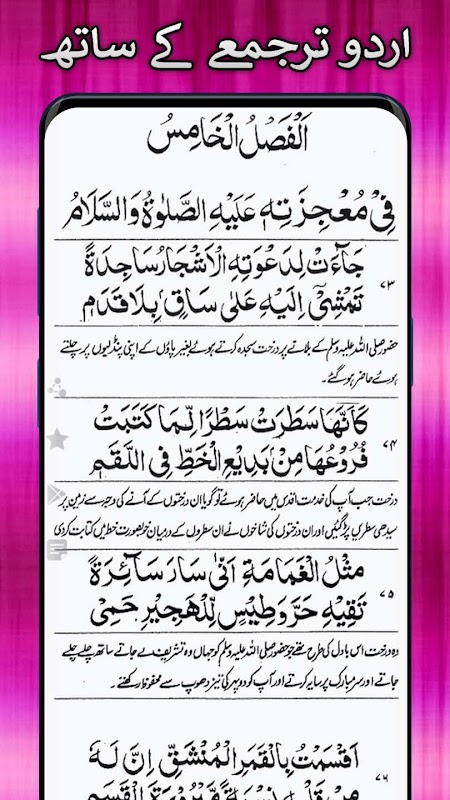 اردو ترجمعے کے ساتھ
اَلْفَصْلُ الْخَامِسُ
فِيْ مُعْجِزَتِهٖ عَلَيْهِ الصَّلٰوةُ وَالسَّلَامُ
جَآءَتْ لِدَعْوَتِهِ الْاَشْجَارُ سَاجِدَةً
۷۳
تَمْشِيْٓ اِلَيْهِ عَلٰى سَاقٍ بِلَا قَدَمٖ
حضور صلی اللہ علیہ وسلم کے بلانے پر درخت سجدہ کرتے ہوئے بغیر پاؤں کے اپنی پنڈلیوں پر چلتے
ہوئے حاضر ہو گئے۔
كَاَنَّهَا سَطَرَتْ سَطْرًا لِّمَا كَتَبَتْ
۷۴
فُرُوْعُهَا مِنْۢ بَدِيْعِ الْخَطِّ فِي اللَّقَمٖ
درخت جب آپ کی خدمت اقدس میں حاضر ہوئے تو گویا ان درختوں کے آنے کی وجہ سے زمین پر
سیدھی سطریں پڑ گئیں اور ان درختوں کی شاخوں نے ان سطروں کے درمیان خوبصورت خط میں کتابت کر دی
مِثْلُ الْغَمَامَةِ اَنّٰى سَارَ سَآئِرَةً
۷۵
تَقِيْهِ حَرَّ وَطِيْسٍ لِّلْهَجِيْرِ حَمِيْ
وہ درخت اس بادل کی طرح تھے جو حضور صلی اللہ علیہ وسلم کو جہاں وہ تشریف لے جاتے ساتھ چلے چلے
جاتے اور سر مبارک پر سایہ کرتے اور آپ کو دوپہر کی تیز دھوپ سے محفوظ رکھتے۔
اَقْسَمْتُ بِالْقَمَرِ الْمُنْشَقِّ اِنَّ لَهٗ
۷۶
مِنْ قَلْبِهٖ نِسْبَةً مَّبْرُوْرَةَ الْقَسَمٖ